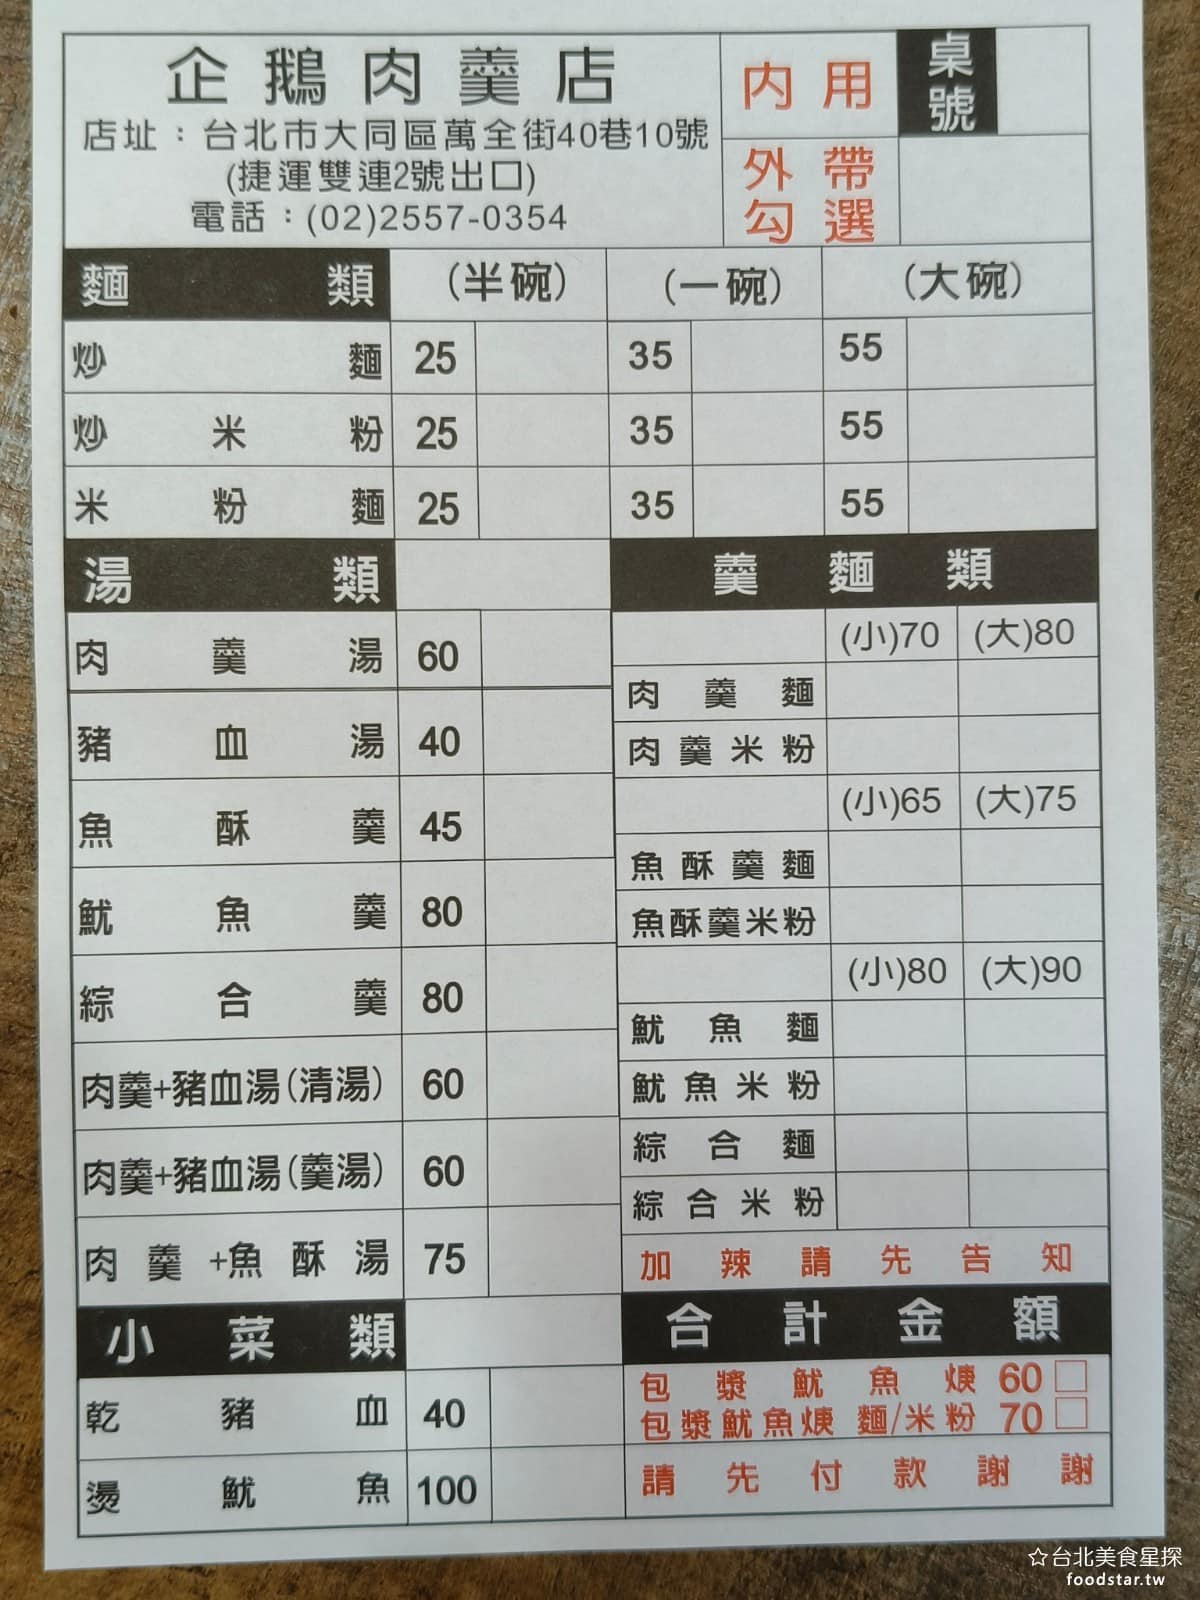 企鵝肉羹店
店址：台北市大同區萬全街40巷10號
(捷運雙連2號出口)
電話：(02)2557-0354
內用 桌號
外帶勾選
麵類 (半碗) (一碗) (大碗)
炒麵 25 35 55
炒米粉 25 35 55
米粉麵 25 35 55
湯類
肉羹湯 60
豬血湯 40
魚酥羹 45
魷魚羹 80
綜合羹 80
肉羹+豬血湯(清湯) 60
肉羹+豬血湯(羹湯) 60
肉羹+魚酥湯 75
小菜類
乾豬血 40
燙魷魚 100
羹麵類
(小)70 (大)80
肉羹麵
肉羹米粉
(小)65 (大)75
魚酥羹麵
魚酥羹米粉
(小)80 (大)90
魷魚麵
魷魚米粉
綜合麵
綜合米粉
加辣請先告知
合計金額
包漿魷魚焿 60
包漿魷魚焿 麵/米粉 70
請先付款謝謝
☆台北美食星探
foodstar.tw